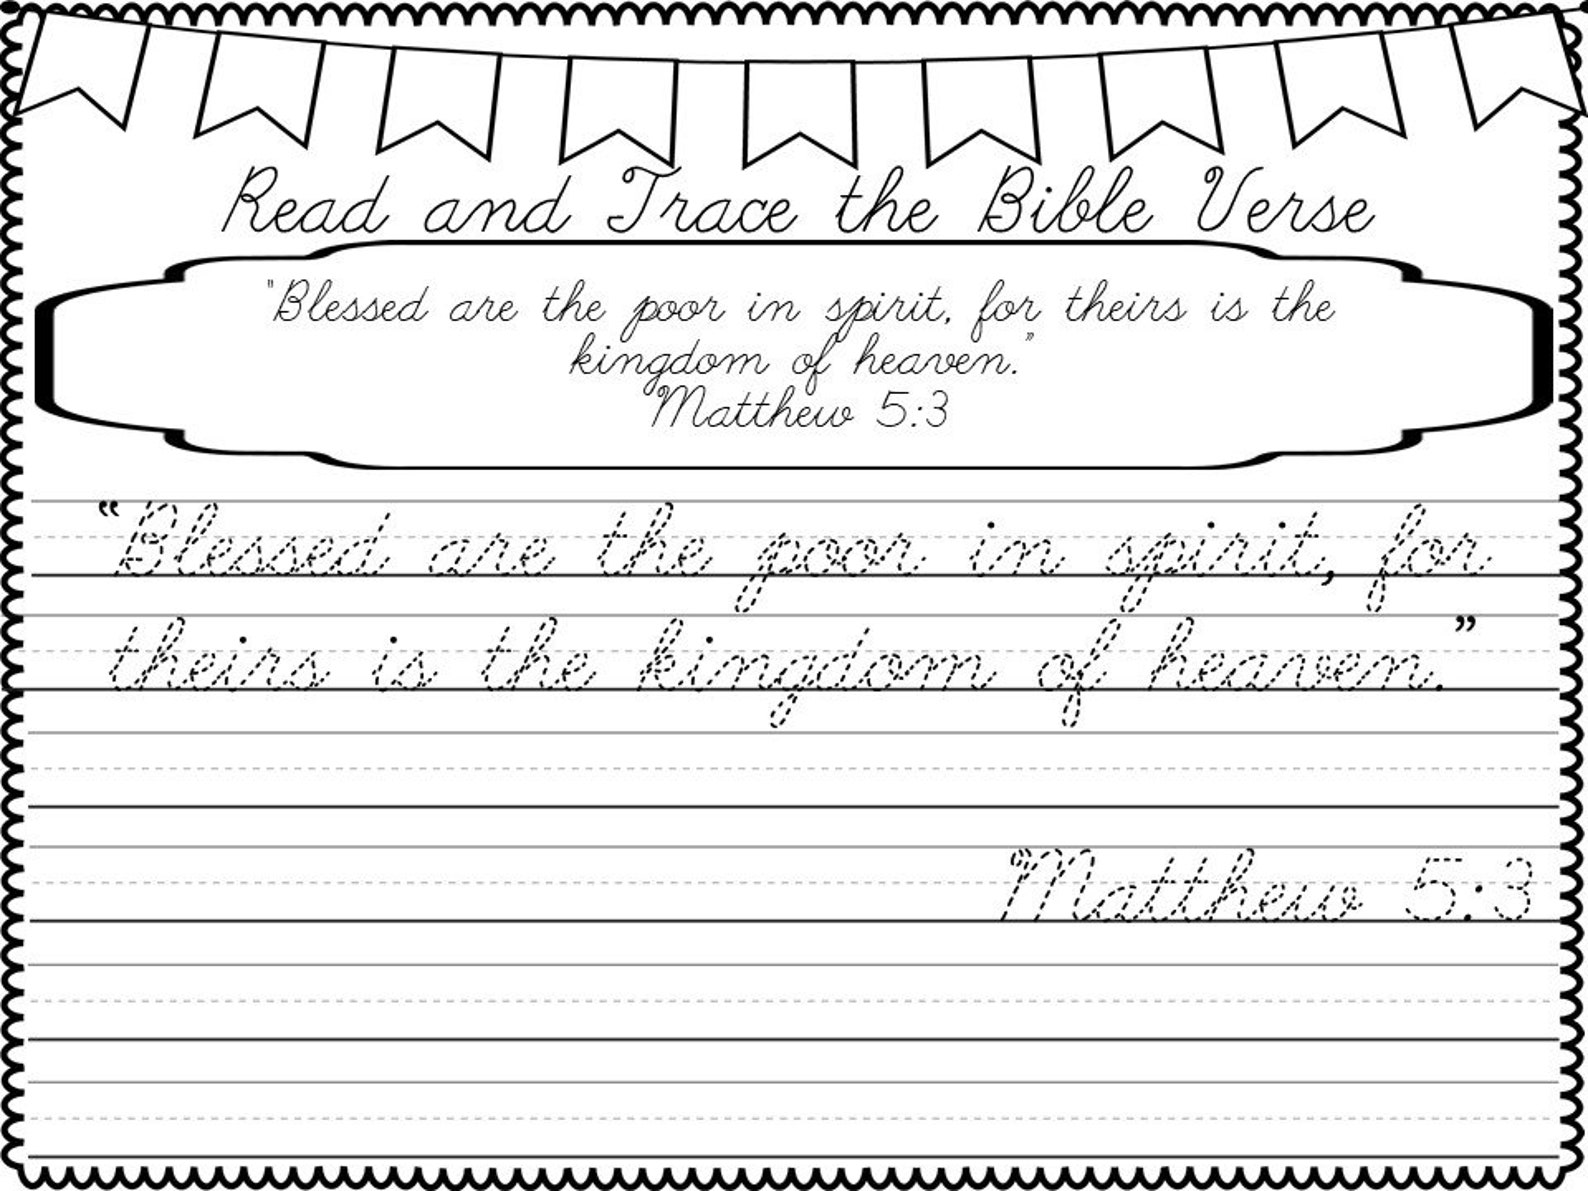 Read and Trace the Bible Verse
"Blessed are the poor in spirit, for theirs is the
kingdom of heaven."
Matthew 5:3
“Blessed are the poor in spirit, for
theirs is the kingdom of heaven.”
Matthew 5:3